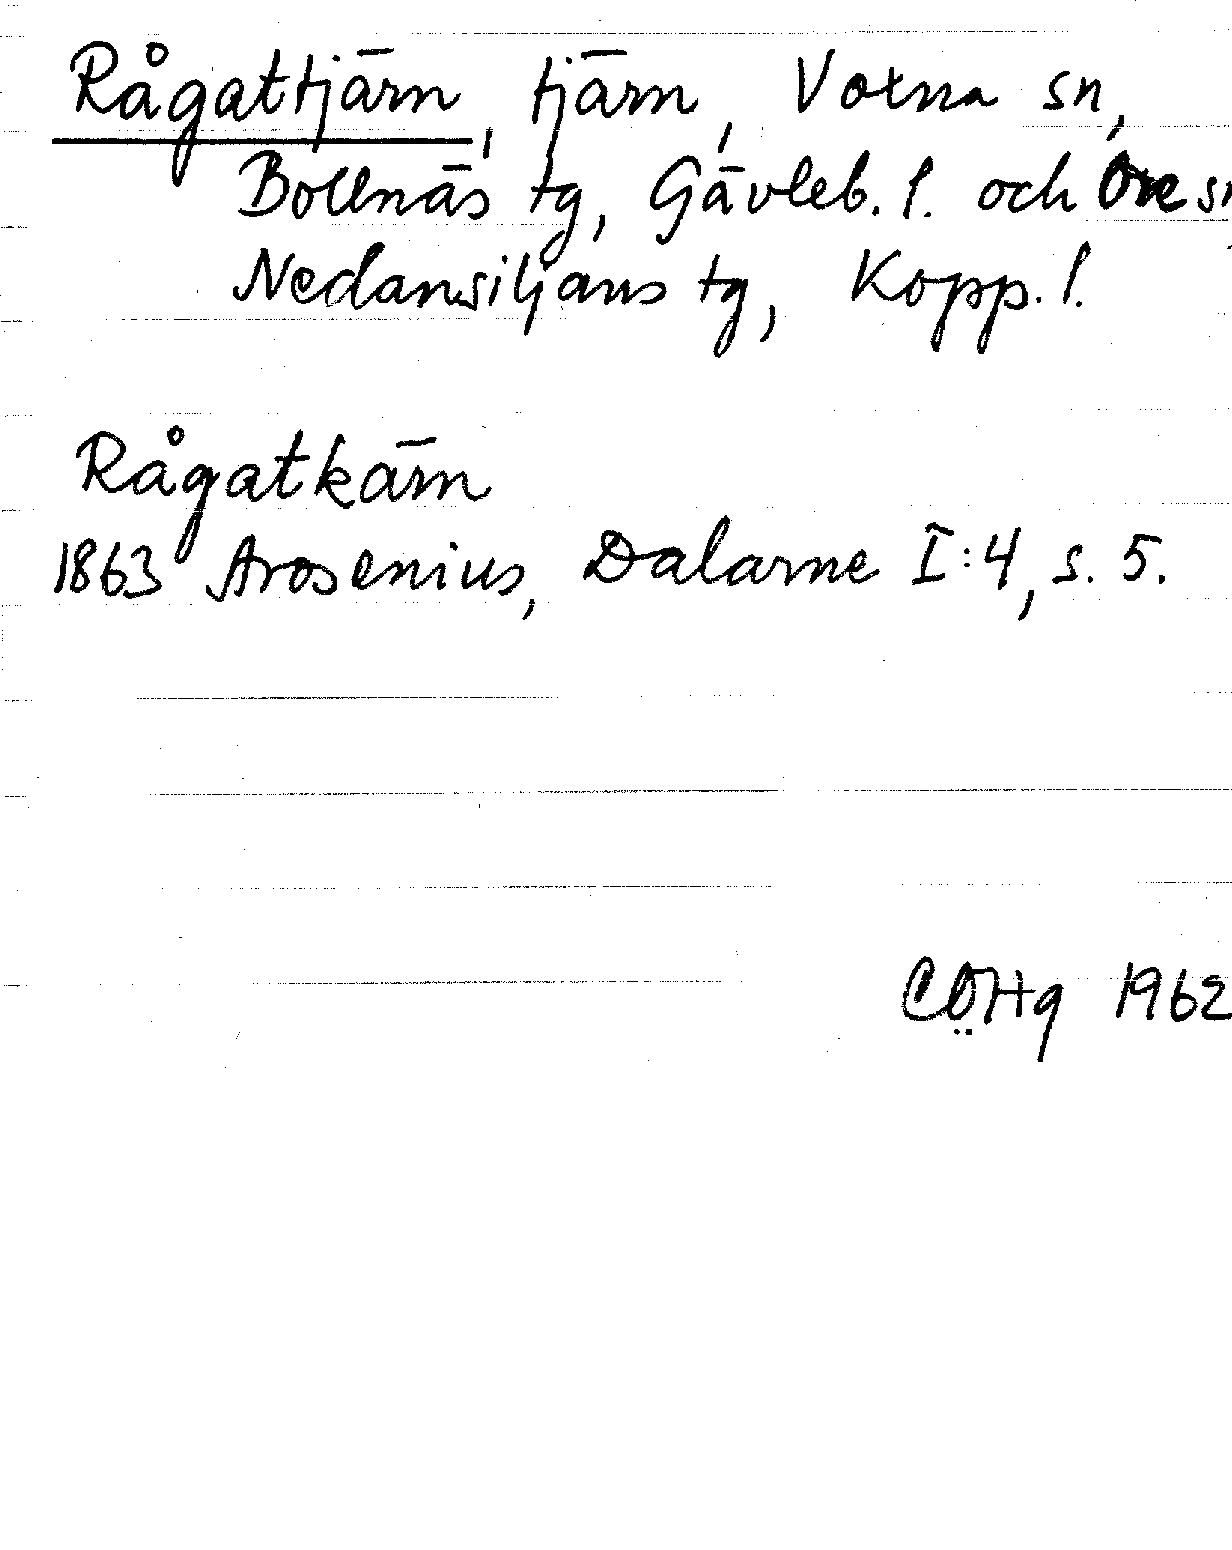 Rågattjärn, tjärn, Voxna sn,
Bollnäs tg, Gävleb. l. och Ore sn
Nedansiljans tg, Kopp. l.
Rågatkärn
1863 Arosenius, Dalarne I:4, s. 5.
CÖHg 1962